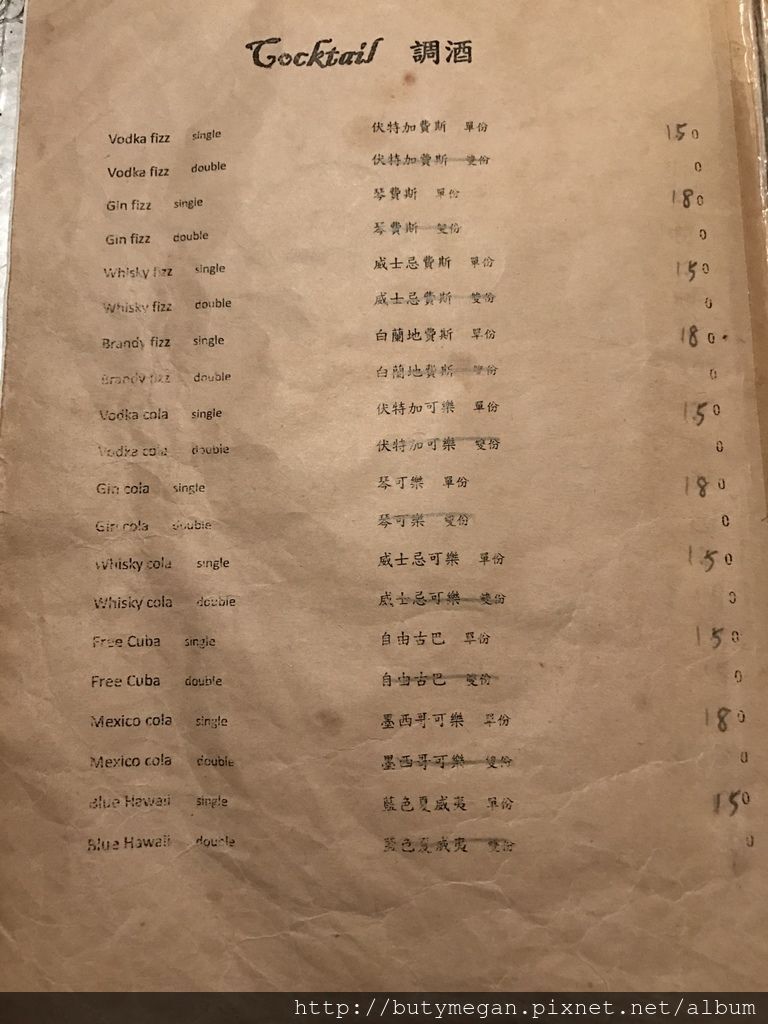 Cocktail 調酒
Vodka fizz single 伏特加費斯 單份 150
Vodka fizz double 伏特加費斯 雙份 0
Gin fizz single 琴費斯 單份 180
Gin fizz double 琴費斯 雙份 0
Whisky fizz single 威士忌費斯 單份 150
Whisky fizz double 威士忌費斯 雙份 0
Brandy fizz single 白蘭地費斯 單份 180
Brandy fizz double 白蘭地費斯 雙份 0
Vodka cola single 伏特加可樂 單份 150
Vodka cola double 伏特加可樂 雙份 0
Gin cola single 琴可樂 單份 180
Gin cola double 琴可樂 雙份 0
Whisky cola single 威士忌可樂 單份 150
Whisky cola double 威士忌可樂 雙份 0
Free Cuba single 自由古巴 單份 150
Free Cuba double 自由古巴 雙份 0
Mexico cola single 墨西哥可樂 單份 180
Mexico cola double 墨西哥可樂 雙份 0
Blue Hawaii single 藍色夏威夷 單份 150
Blue Hawaii double 藍色夏威夷 雙份 0
http://butymegan.pixnet.net/album